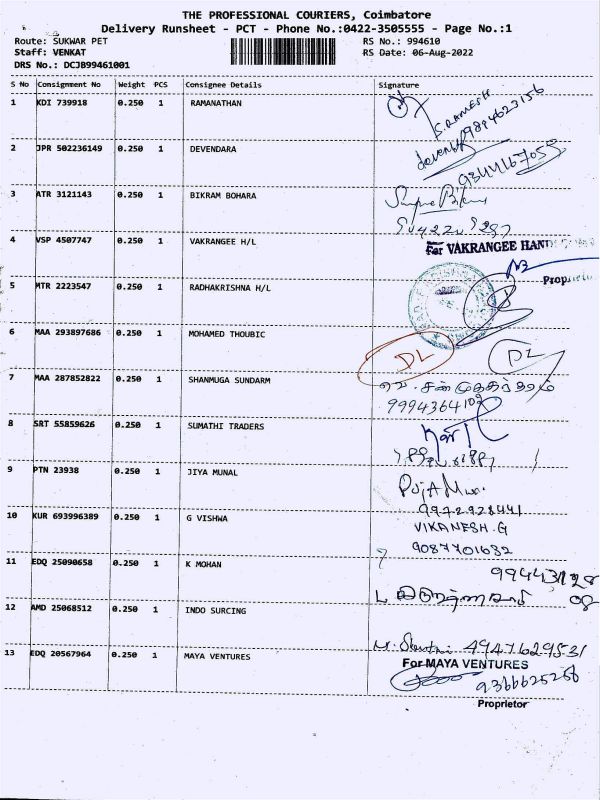 THE PROFESSIONAL COURIERS, Coimbatore
Delivery Runsheet - PCT - Phone No.:0422-3505555 - Page No.:1
Route: SUKWAR PET RS No.: 994610
Staff: VENKAT RS Date: 06-Aug-2022
DRS No.: DCJB99461001
S No Consignment No Weight PCS Consignee Details Signature
1 KDI 739918 0.250 1 RAMANATHAN
S.RAMESH
9894623156
2 JPR 502236149 0.250 1 DEVENDARA
9344167055
3 ATR 3121143 0.250 1 BIKRAM BOHARA
4 VSP 4507747 0.250 1 VAKRANGEE H/L
For VAKRANGEE
5 MTR 2223547 0.250 1 RADHAKRISHNA H/L
6 MAA 293897686 0.250 1 MOHAMED THOUBIC
DL DL
7 MAA 287852822 0.250 1 SHANMUGA SUNDARM
9994364102
8 SRT 55859626 0.250 1 SUMATHI TRADERS
9 PTN 23938 0.250 1 JIYA MUNAL
9972928441
10 KUR 693996389 0.250 1 G VISHWA
VIKANESH.G
9087701632
11 EDQ 25090658 0.250 1 K MOHAN
12 AMD 25068512 0.250 1 INDO SURCING
4947629531
13 EDQ 20567964 0.250 1 MAYA VENTURES
For MAYA VENTURES
9366625256
Proprietor